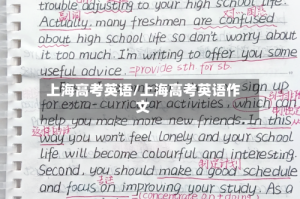 trouble adjusting to your high school life.
Actually, many freshmen are confused
about high school life so don't worry about
it too much. I'm writing to offer you some
useful advice. =provide sth for sb
上海高考英语/上海高考英语作文
sign up
for extra-curricular activities, which can
help you make more new friends. In this
way you won't feel lonely and your school
life will become colourful and interesting.
Second, you should make a good schedule
and focus on improving your study. As a
(concentrate on